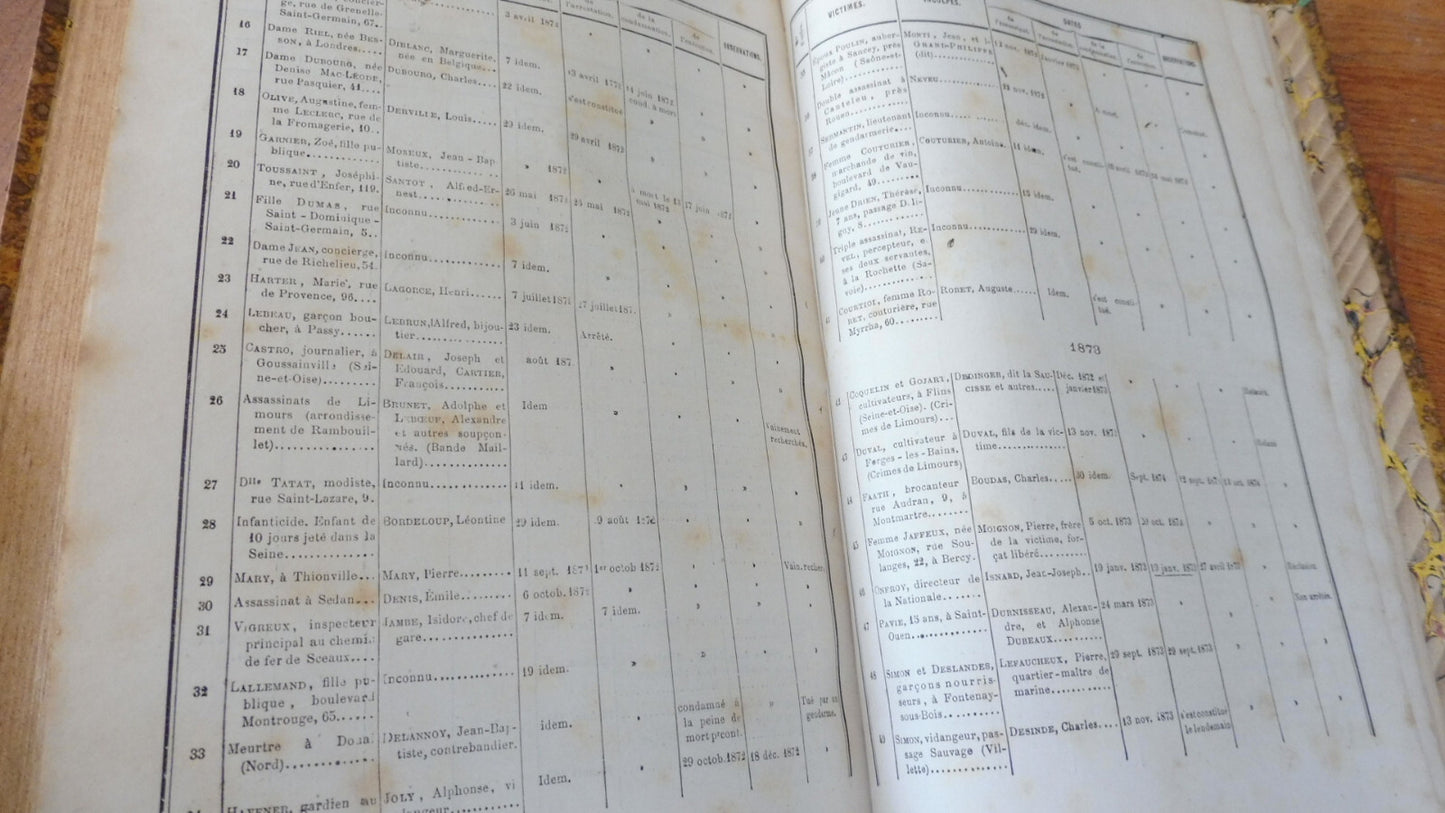 ge, rue de Grenelle-
Saint-Germain, 67..
3 avril 1872
de l'arrestation.
de la condamnation.
de l'exécution.
OBSERVATIONS.
16
Dame RIEL, née BES-
SON, à Londres.....
DIBLANC, Marguerite,
née en Belgique...
7 idem.
13 avril 1872
14 juin 1872
cond. à mort
17
Dame DUBOURG, née
Denise MAC-LÉODE,
rue Pasquier, 41....
DUBOURG, Charles....
22 idem.
s'est constitué
18
OLIVE, Augustine, fem-
me LECLERC, rue de
la Fromagerie, 10..
DERVILLE, Louis.....
29 idem.
29 avril 1872
19
GARNIER, Zoé, fille pu-
blique............
MOREUX, Jean-Bap-
tiste............
» 1872
20
TOUSSAINT, Joséphi-
ne, rue d'Enfer, 119.
SANTOT, Alfred-Er-
nest............
26 mai 1872
21
Fille DUMAS, rue
Saint-Dominique-
Saint-Germain, 5..
Inconnu............
3 juin 1872
22
Dame JEAN, concierge,
rue de Richelieu, 54.
Inconnu............
7 idem.
23
HARTER, Marie, rue
de Provence, 96....
LAGORCE, Henri......
7 juillet 1872
24
LEBEAU, garçon bou-
cher, à Passy......
LEBRUN, Alfred, bijou-
tier............
23 idem.
Arrêté.
25
CASTRO, journalier, à
Goussainville (Sei-
ne-et-Oise).........
DELAIR, Joseph et
Edouard, CARTIER,
François...........
août 187
26
Assassinats de Li-
mours (arrondisse-
ment de Rambouil-
let)..............
BRUNET, Adolphe et
LEBŒUF, Alexandre
et autres soupçon-
nés. (Bande Mail-
lard)............
Idem
Vainement
recherchés.
27
Dlle TATAT, modiste,
rue Saint-Lazare, 9.
Inconnu............
11 idem.
28
Infanticide. Enfant de
10 jours jeté dans la
Seine.............
BORDELOUP, Léontine
29 idem.
29
MARY, à Thionville...
MARY, Pierre.........
11 sept. 1872
1er octob 1872
Vain. recher.
30
Assassinat à Sedan...
DENIS, Émile.........
6 octob. 1872
31
VIGREUX, inspecteur
principal au chemin
de fer de Sceaux....
JAMBE, Isidore, chef de
gare..............
7 idem.
7 idem.
32
LALLEMAND, fille pu-
blique, boulevard
Montrouge, 65......
Inconnu............
19 idem.
33
Meurtre à Douai
(Nord).............
DELANNOY, Jean-Bap-
tiste, contrebandier.
idem.
condamné à
la peine de
mort pr cont.
Tué par un
gendarme.
HAFFNER, gardien au
JOLY, Alphonse, vi
Idem.
29 octob. 1872
18 déc. 1872
VICTIMES.
DATES
POULIN, auber-
giste à Sancey, près
Mâcon (Saône-et-
Loire)............
MONTI, Jean, et le
GRAND-PHILIPPE
(dit)............
Double assassinat à
Canteleu, près
Rouen............
NEVEU............
SERMANTIN, lieutenant
de gendarmerie....
Inconnu............
déc. idem.
Femme COUTURIER,
marchande de vin,
boulevard de Vau-
gigard, 49........
COUTURIER, Antoine.
11 idem.
Jeune DRIEN, Thérèse,
7 ans, passage D.li-
guy, 8............
Inconnu............
15 idem.
Triple assassinat, RE-
VEL, percepteur, e
ses deux servantes,
à la Rochette (Sa-
voie)............
Inconnu............
29 idem.
COURTIOL, femme RO-
RET, couturière, rue
Myrrha, 60.........
RORET, Auguste......
Idem.
s'est consti-
tué.
1873
COQUELIN et GOJART,
cultivateurs, à Flins
(Seine-et-Oise). (Cri-
mes de Limours)...
DEDINGER, dit la SAU-
CISSE et autres.....
Déc. 1872 et
janvier 1873
43
DUVAL, cultivateur à
Forges-les-Bains.
(Crimes de Limours)
DUVAL, fils de la vic-
time............
13 nov. 1872
44
FAATH, brocanteur
rue Audran, 9, à
Montmartre........
BOUDAS, Charles.....
30 idem.
Sept. 1874
45
Femme JAFFEUX, née
MOIGNON, rue Sou-
langes, 22, à Bercy.
MOIGNON, Pierre, frère
de la victime, for-
çat libéré.........
5 oct. 1873
46
ONFROY, directeur de
la Nationale.......
ISNARD, Jean-Joseph..
19 janv. 1873
19 janv. 1873
27 avril 1873
Réclusion
47
PAVIE, 15 ans, à Saint-
Ouen............
DURNISSEAU, Alexan-
dre, et Alphonse
DUBEAUX.........
24 mars 1873
Non arrêtés.
48
SIMON et DESLANDES,
garçons nourris-
seurs, à Fontenay-
sous-Bois..........
LEFAUCHEUX, Pierre,
quartier-maître de
marine............
29 sept. 1873
29 sept. 1873
49
SIMON, vidangeur, pas-
sage Sauvage (Vil-
lette)............
DESINDE, Charles....
13 nov. 1873
s'est constitué
le lendemain